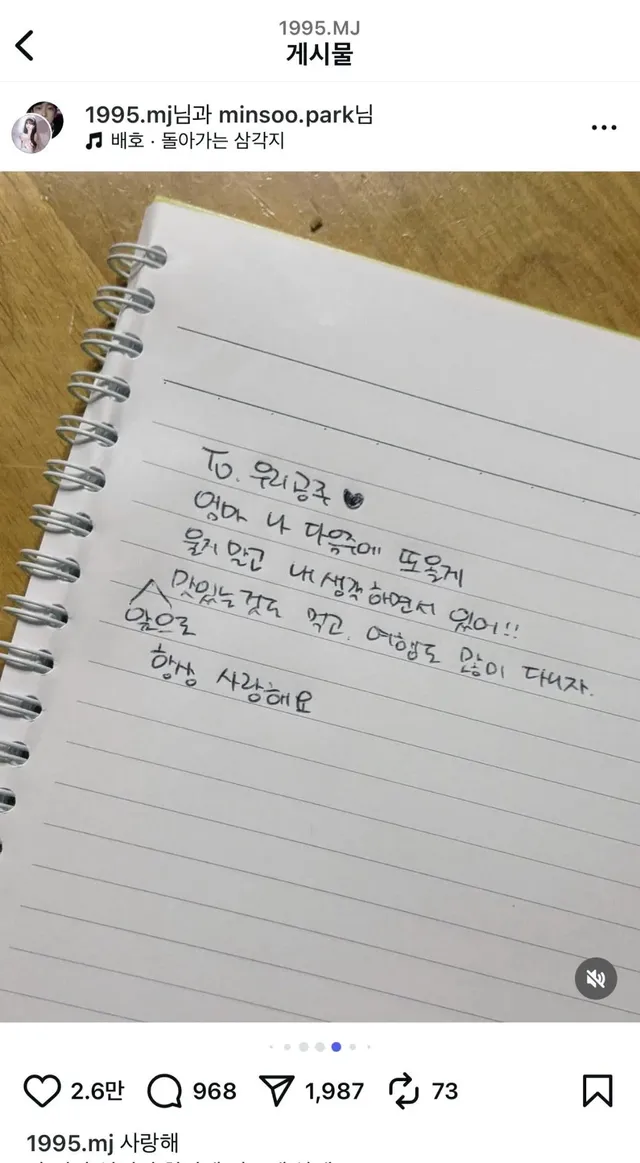 1995.MJ
게시물
1995.mj님과 minsoo.park님
배호 · 돌아가는 삼각지
To. 우리공주 ♥
엄마 나 다음주에 또올게
울지말고 내생각하면서 있어!!
맛있는것도 먹고. 여행도 많이 다니자.
앞으로
항상 사랑해요
2.6만 968 1,987 73
1995.mj 사랑해